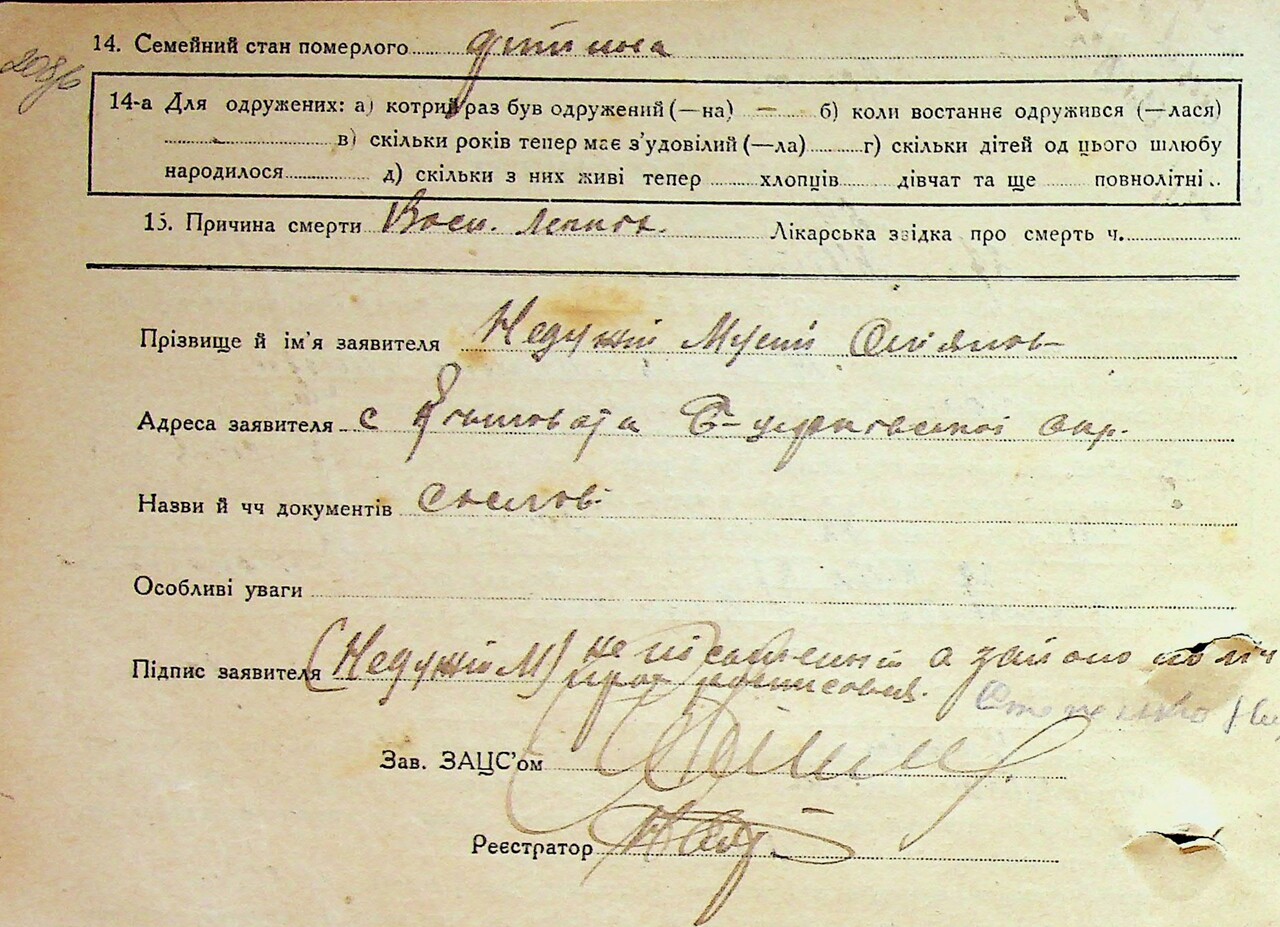 14. Семейний стан померлого дитина
14-а Для одружених: а) котрий раз був одружений (—на) — б) коли востаннє одружився (—лася)
в) скільки років тепер має з'удовілий (—ла) г) скільки дітей од цього шлюбу
народилося д) скільки з них живі тепер хлопців дівчат та ще повнолітні
15. Причина смерти Восп. легких. Лікарська звідка про смерть ч.
Прізвище й ім'я заявителя Недужій Мусій
Адреса заявителя с Б-церковської окр.
Назви й чч документів
Особливі уваги
Підпис заявителя (Недужій М) не писменний а за його
Зав. ЗАЦС'ом
Реєстратор